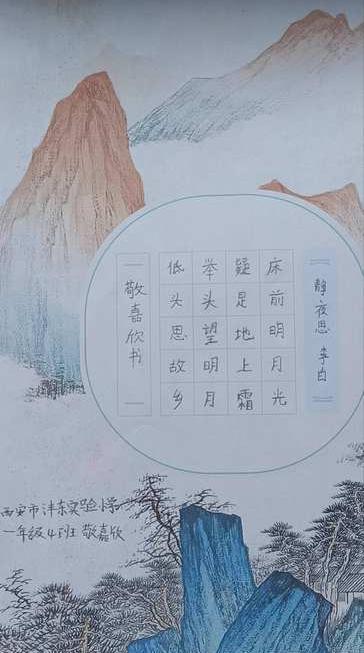 静夜思 李白
床前明月光
疑是地上霜
举头望明月
低头思故乡
敬嘉欣书
西安市沣东实验小学
一年级4班 敬嘉欣